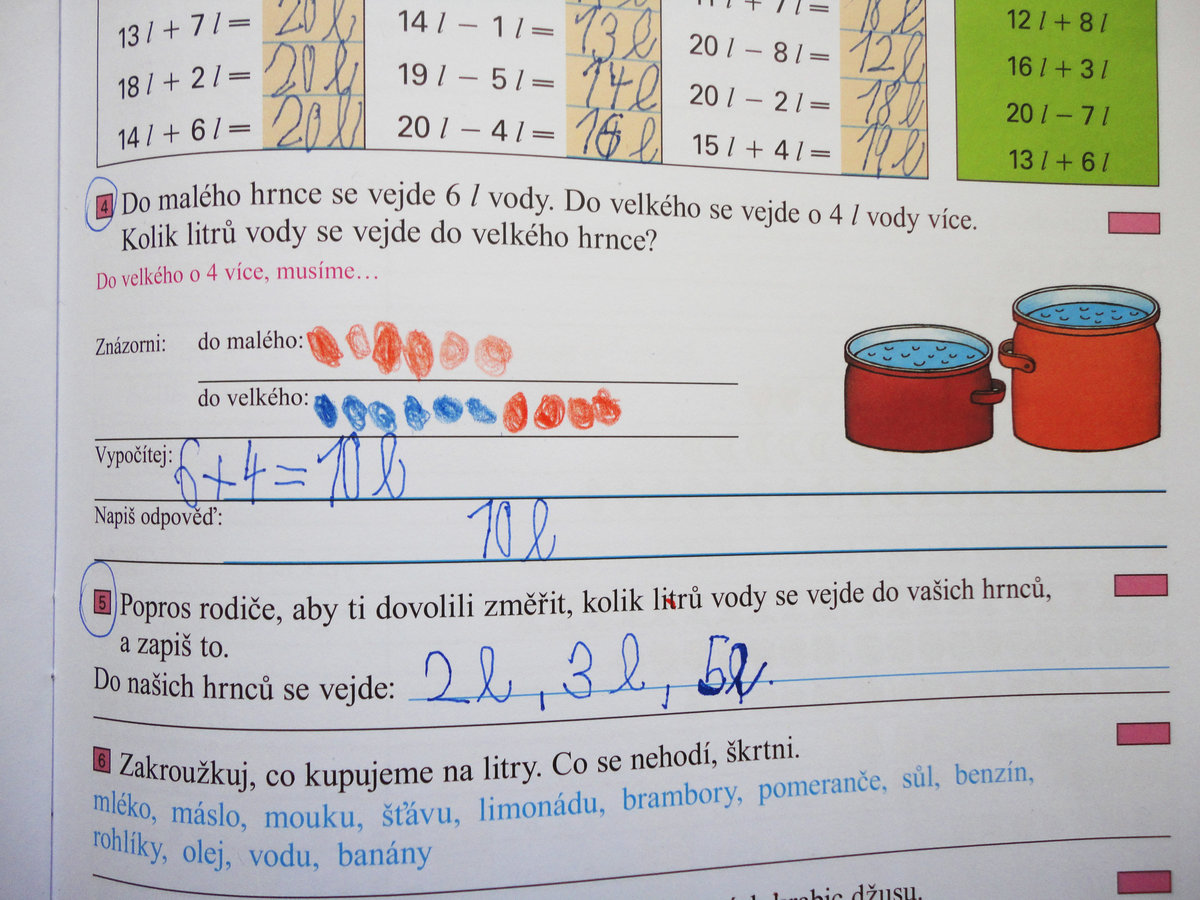 13 l + 7 l = 20 l 14 l − 1 l = 13 l 11 l + 7 l = 18 l 12 l + 8 l
18 l + 2 l = 20 l 19 l − 5 l = 14 l 20 l − 8 l = 12 l 16 l + 3 l
14 l + 6 l = 20 l 20 l − 4 l = 16 l 20 l − 2 l = 18 l 20 l − 7 l
15 l + 4 l = 19 l 13 l + 6 l
4 Do malého hrnce se vejde 6 l vody. Do velkého se vejde o 4 l vody více.
Kolik litrů vody se vejde do velkého hrnce?
Do velkého o 4 více, musíme...
Znázorni: do malého:
do velkého:
Vypočítej: 6+4=10 l
Napiš odpověď: 10 l
5 Popros rodiče, aby ti dovolili změřit, kolik litrů vody se vejde do vašich hrnců,
a zapiš to.
Do našich hrnců se vejde: 2 l, 3 l, 5 l.
6 Zakroužkuj, co kupujeme na litry. Co se nehodí, škrtni.
mléko, máslo, mouku, šťávu, limonádu, brambory, pomeranče, sůl, benzín,
rohlíky, olej, vodu, banány
džusu.